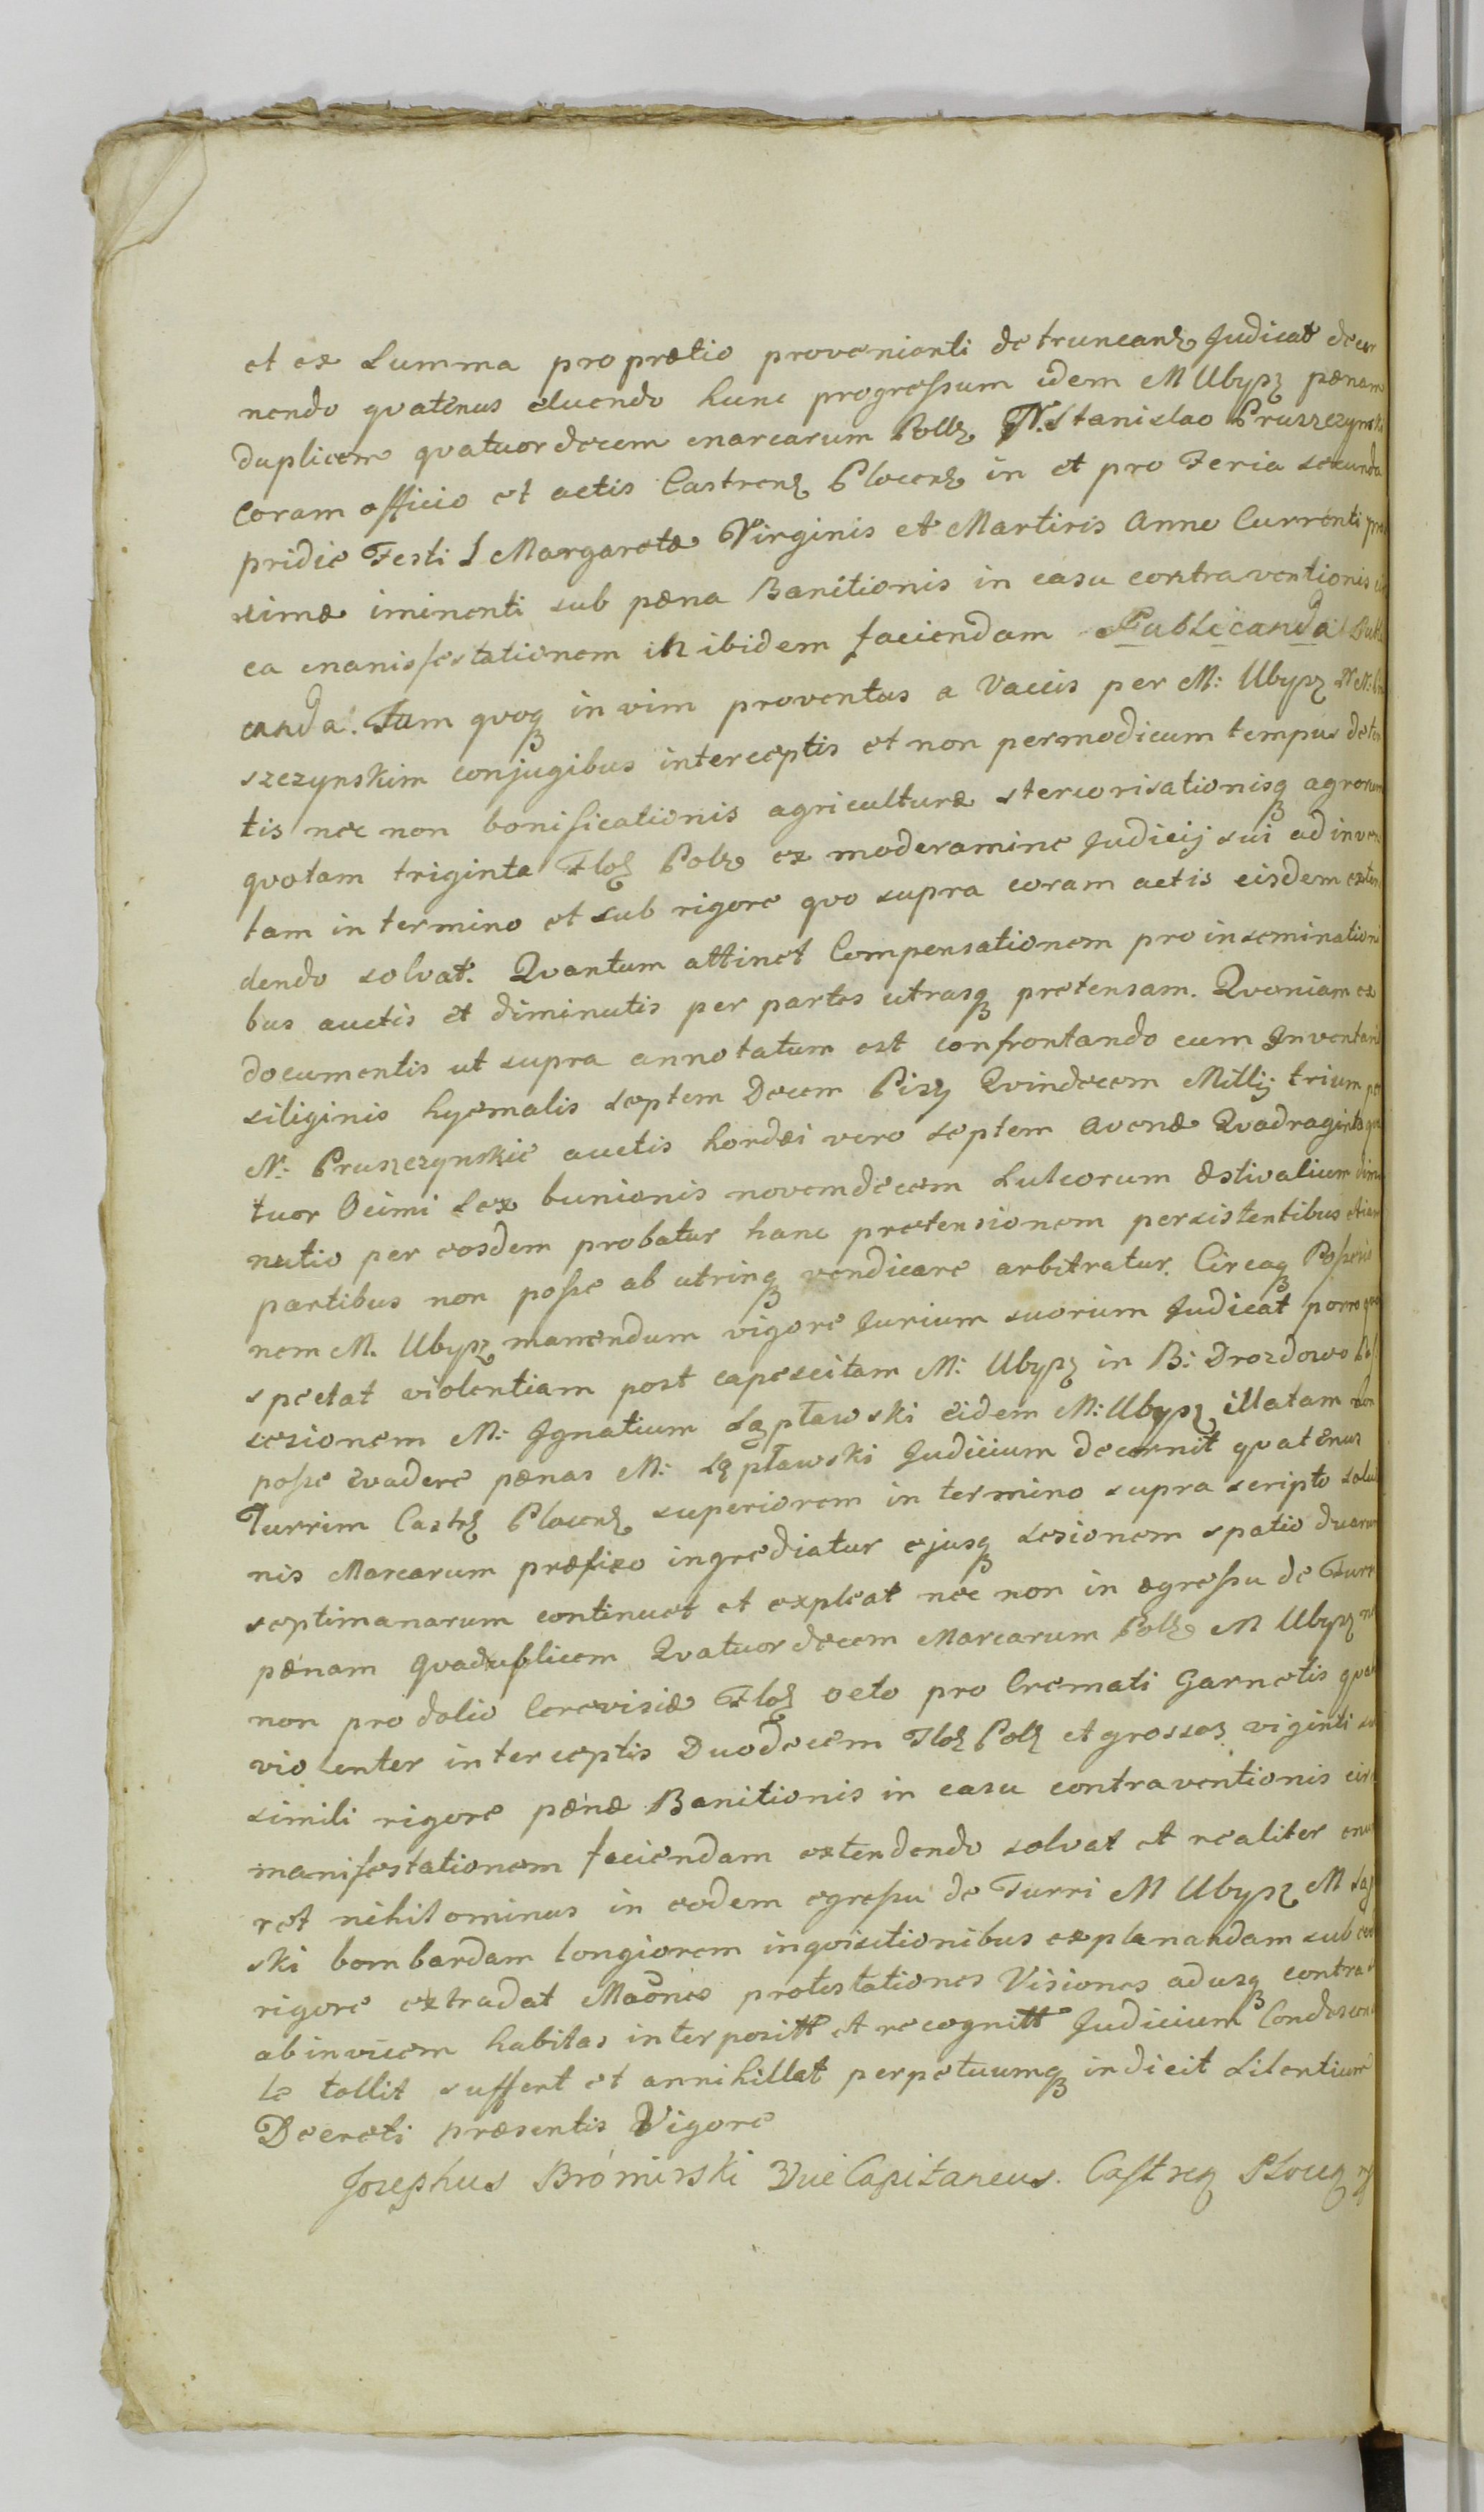 et ex Summa pro prætio provenienti detruncanꝫ Judicat decer
nendo qvatenus eluendo hunc progreſsum idem M Ubyſꝫ pænam
duplicem qvatuordecem marcarum Pollꝫ N. Stanislao Pruszczynski
Coram officio et actis Castrenꝫ Plocenꝫ in et pro Feria secunda
pridie Festi S Margaretæ Virginis et Martiris Anno Currenti pro
ximæ iminenti sub pæna Banitionis in casu contraventionis
ea manifestationem in ibidem faciendam Publicanda Publi
canda. Tum qvoqꝫ in vim proventus a Vaccis per M: Ubyſꝫ N N:
szczynskim conjugibus interceptis et non permodicum tempus deten
tis nec non bonificationis agriculturæ stercorisationisqꝫ agrorum
qvotam triginta Floꝫ Polꝫ ex moderamine Judicij sui adinven
tam in termino et sub rigore qvo supra coram actis eisdem exten
dendo solvat. Qvantum attinet Compensationem pro inseminationi
bus auctis et diminutis per partes utrasqꝫ pretensam. Qvoniam ex
documentis ut supra annotatum est confrontando cum Inventario
siliginis hyemalis septem Decem Pisy Qvindecem Millij trium per
N: Pruszczynskie auctis hordæi vero septem avenæ Qvadraginta qva
tuor Ocimi Sex bunionis novemdecem Sulcorum æstivalium dimi
nutio per eosdem probatur hanc pretensionem persistentibus etiam
partibus non poſse ab utrinqꝫ vendicare arbitratur. Circaqꝫ Poſseſsio
nem M. Ubyſꝫ manendum vigore Jurium suorum Judicat porro qvo
spectat violentiam post capescitam M: Ubyſꝫ in B: Drozdowo Poſ
sesionem M: Ignatium Sęptawski eidem M: Ubyſꝫ illatam non
poſse evadere pænas M: Sęptawski Judicium decernit qvatenus
Turrim Castrꝫ Plocenꝫ superiorem in termino supra scripto solutio
nis Marcarum præfixo ingrediatur ejusqꝫ sesionem spatio duarum
septimanarum continuet et expleat nec non in egreſsu de Turri
pænam qvaduplicem Qvatuordecem Marcarum Polꝫ M Ubyſꝫ nec
non pro dolio Cerevisiæ Floꝫ octo pro Cremati Garnetis
violenter interceptis Duodecem Floꝫ Polꝫ et grossos viginti sub
simili rigore pænæ Banitionis in casu contraventionis circa
manifestationem faciendam extendendo solvat et realiter enume
ret nihilominus in eodem egreſsu de Turri M Ubyſꝫ M
ski bombardam longiorem inqvisitionibus explanandam sub eodem
rigore extradat Maones protestationes Visiones adusqꝫ contra se
abinvicem habitas interpositt et recognitt Judicium Condescen
le tollit suffert et annihillat perpetuumqꝫ indicit Silentium
Decreti præsentis Vigore
Josephus Brómirski Vice Capitaneus. Caſtreꝫ Plocꝫ